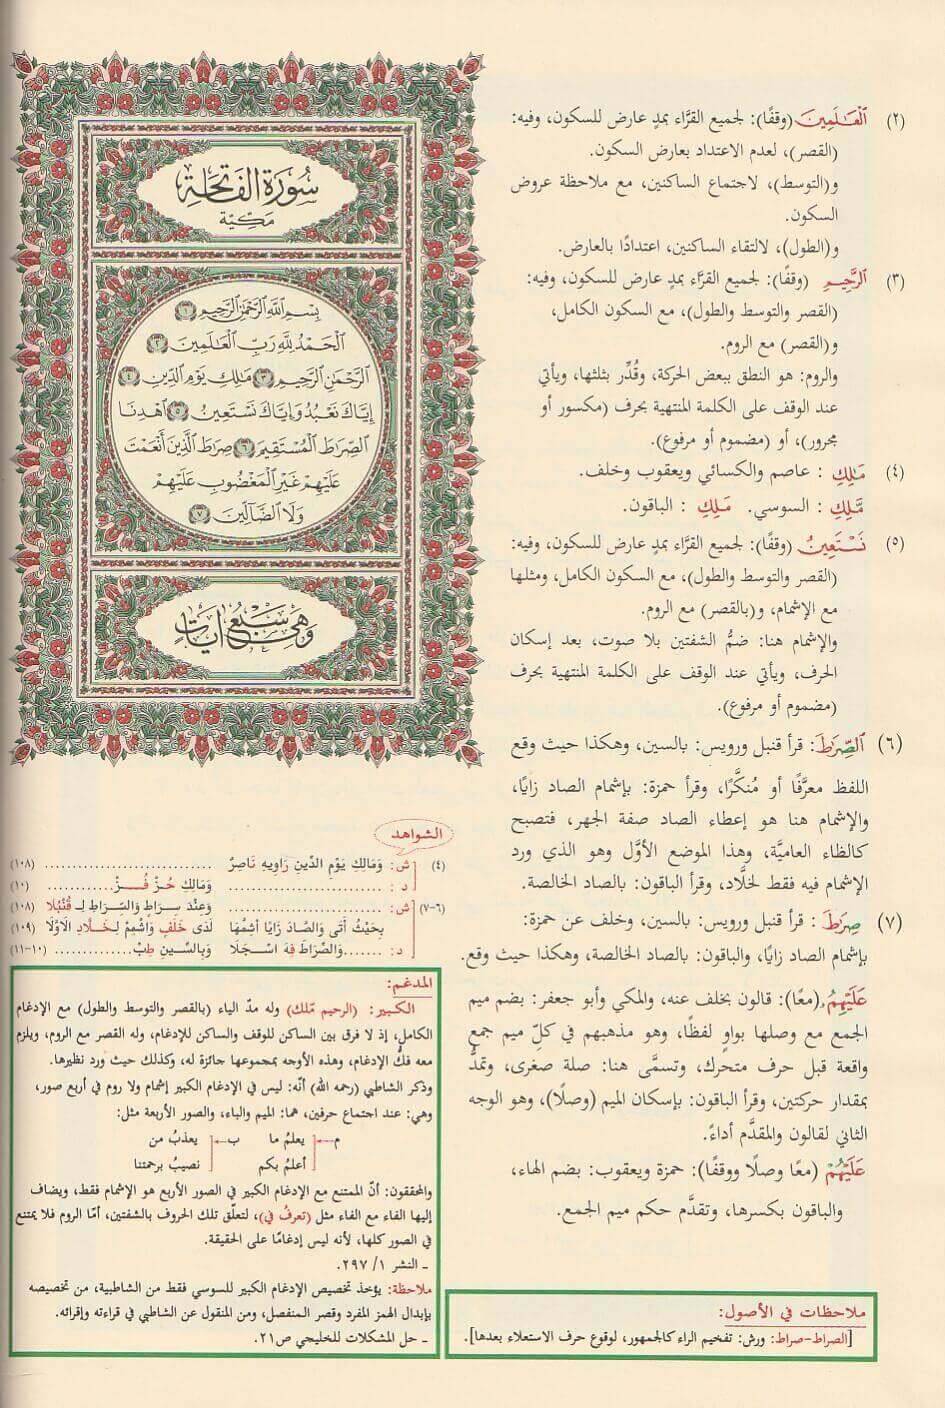 (٢) ٱلْعَٰلَمِينَ (وقفًا): لجميع القرَّاء بمدٍ عارض للسكون، وفيه:
(القصر)، لعدم الاعتداد بعارض السكون.
و(التوسط)، لاجتماع الساكنين، مع ملاحظة عروض
السكون.
و(الطول)، لالتقاء الساكنين، اعتدادًا بالعارض.
(٣) ٱلرَّحِيمِ (وقفًا): لجميع القرَّاء بمدٍ عارض للسكون، وفيه:
(القصر والتوسط والطول)، مع السكون الكامل،
و(القصر) مع الروم.
والروم: هو النطق ببعض الحركة، وقُدِّر بثلثها، ويأتي
عند الوقف على الكلمة المنتهية بحرف (مكسور أو
مجرور)، أو (مضموم أو مرفوع).
(٤) مَٰلِكِ : عاصم والكسائي ويعقوب وخلف.
مَّلِكِ : السوسي. مَلِكِ : الباقون.
(٥) نَسْتَعِينُ (وقفًا): لجميع القرَّاء بمدٍ عارض للسكون، وفيه:
(القصر والتوسط والطول)، مع السكون الكامل، ومثلها
مع الإشمام، و(بالقصر) مع الروم.
والإشمام هنا: ضمُّ الشفتين بلا صوت، بعد إسكان
الحرف، ويأتي عند الوقف على الكلمة المنتهية بحرف
(مضموم أو مرفوع).
(٦) ٱلصِّرَٰطَ: قرأ قنبل ورويس: بالسين، وهكذا حيث وقع
اللفظ معرَّفًا أو مُنكَّرًا، وقرأ حمزة: بإشمام الصاد زايًا،
والإشمام هنا هو إعطاء الصاد صفة الجهر، فتصبح
كالظاء العاميَّة، وهذا الموضع الأوَّل وهو الذي ورد
الإشمام فيه فقط لخلَّاد، وقرأ الباقون: بالصاد الخالصة.
(٧) صِرَٰطَ : قرأ قنبل ورويس: بالسين، وخلف عن حمزة:
بإشمام الصاد زايًا، والباقون: بالصاد الخالصة، وهكذا حيث وقع.
عَلَيْهِمُۥ (معًا): قالون بخلف عنه، والمكي وأبو جعفر: بضم ميم
الجمع مع وصلها بواوٍ لفظًا، وهو مذهبهم في كلِّ ميم جمع
واقعة قبل حرف متحرك، وتسمَّى هنا: صلة صغرى، وتمدُّ
بمقدار حركتين، وقرأ الباقون: بإسكان الميم (وصلًا)، وهو الوجه
الثاني لقالون والمقدَّم أداءً.
عَلَيْهُمْ (معًا وصلًا ووقفًا): حمزة ويعقوب: بضم الهاء،
والباقون بكسرها، وتقدَّم حكم ميم الجمع.
ملاحظات في الأصول:
[الصراط-صراط: ورش: تفخيم الراء كالجمهور، لوقوع حرف الاستعلاء بعدها].
سُورَةُ الفَاتِحَةِ
مَكِيَّة
بِسْمِ ٱللَّهِ ٱلرَّحْمَٰنِ ٱلرَّحِيمِ ١
ٱلْحَمْدُ لِلَّهِ رَبِّ ٱلْعَٰلَمِينَ ٢
ٱلرَّحْمَٰنِ ٱلرَّحِيمِ ٣ مَٰلِكِ يَوْمِ ٱلدِّينِ ٤
إِيَّاكَ نَعْبُدُ وَإِيَّاكَ نَسْتَعِينُ ٥ ٱهْدِنَا
ٱلصِّرَٰطَ ٱلْمُسْتَقِيمَ ٦ صِرَٰطَ ٱلَّذِينَ أَنْعَمْتَ
عَلَيْهِمْ غَيْرِ ٱلْمَغْضُوبِ عَلَيْهِمْ
وَلَا ٱلضَّآلِّينَ ٧
وَهِيَ سَبْعُ آيَاتٍ
الشواهد
(٤) ش: وَمَالِكِ يَوْمِ الدِّينِ رَاوِيهِ نَاصِرٌ .............................. (١٠٨)
د: .............................. وَمَالِكِ حُزْ فُـــزْ............ (١٠)
(٦-٧) ش: .............................. وَعِنْدَ سِرَاطٍ وَالسِّرَاطِ لِـ قُنْبُلا (١٠٨)
بِحَيْثُ أَتَى وَالصَّادَ زَايًا أَشِمَّهَا لَدَى خَلَفٍ وَاشْمِمْ لِـخَلَّادِ الَاوَّلَا (١٠٩)
د: .......وَالصِّرَاطَ فِهْ اسْجَلَا وَبِالسِّينِ طِبْ............ (١٠-١١)
المدغم:
الكبير: (الرحيم مّلك) وله مدّ الياء (بالقصر والتوسط والطول) مع الإدغام
الكامل، إذ لا فرق بين الساكن للوقف والساكن للإدغام، وله القصر مع الروم، ويلزم
معه فكُّ الإدغام، وهذه الأوجه بمجموعها جائزة له، وكذلك حيث ورد نظيرها.
وذكر الشاطبي (رحمه الله) أنّه: ليس في الإدغام الكبير إشمام ولا روم في أربع صور،
وهي: عند اجتماع حرفين، هما: الميم والباء، والصور الأربعة مثل:
م يعلمُ ما ب يعذبُ من
أعلمُ بكم نصيبُ برحمتنا
والمحققون: أنّ الممتنع مع الإدغام الكبير في الصور الأربع هو الإشمام فقط، ويضاف
إليها الفاء مع الفاء مثل (تعرفُ في)، لتعلّق تلك الحروف بالشفتين، أمّا الروم فلا يمتنع
في الصور كلها، لأنه ليس إدغامًا على الحقيقة.
ـ النشر ١/ ٢٩٧.
ملاحظة: يؤخذ تخصيص الإدغام الكبير للسوسي فقط من الشاطبية، من تخصيصه
بإبدال الهمز المفرد وقصر المنفصل، ومن المنقول عن الشاطبي في قراءته وإقرائه.
ـ حل المشكلات للخليجي ص٢١.